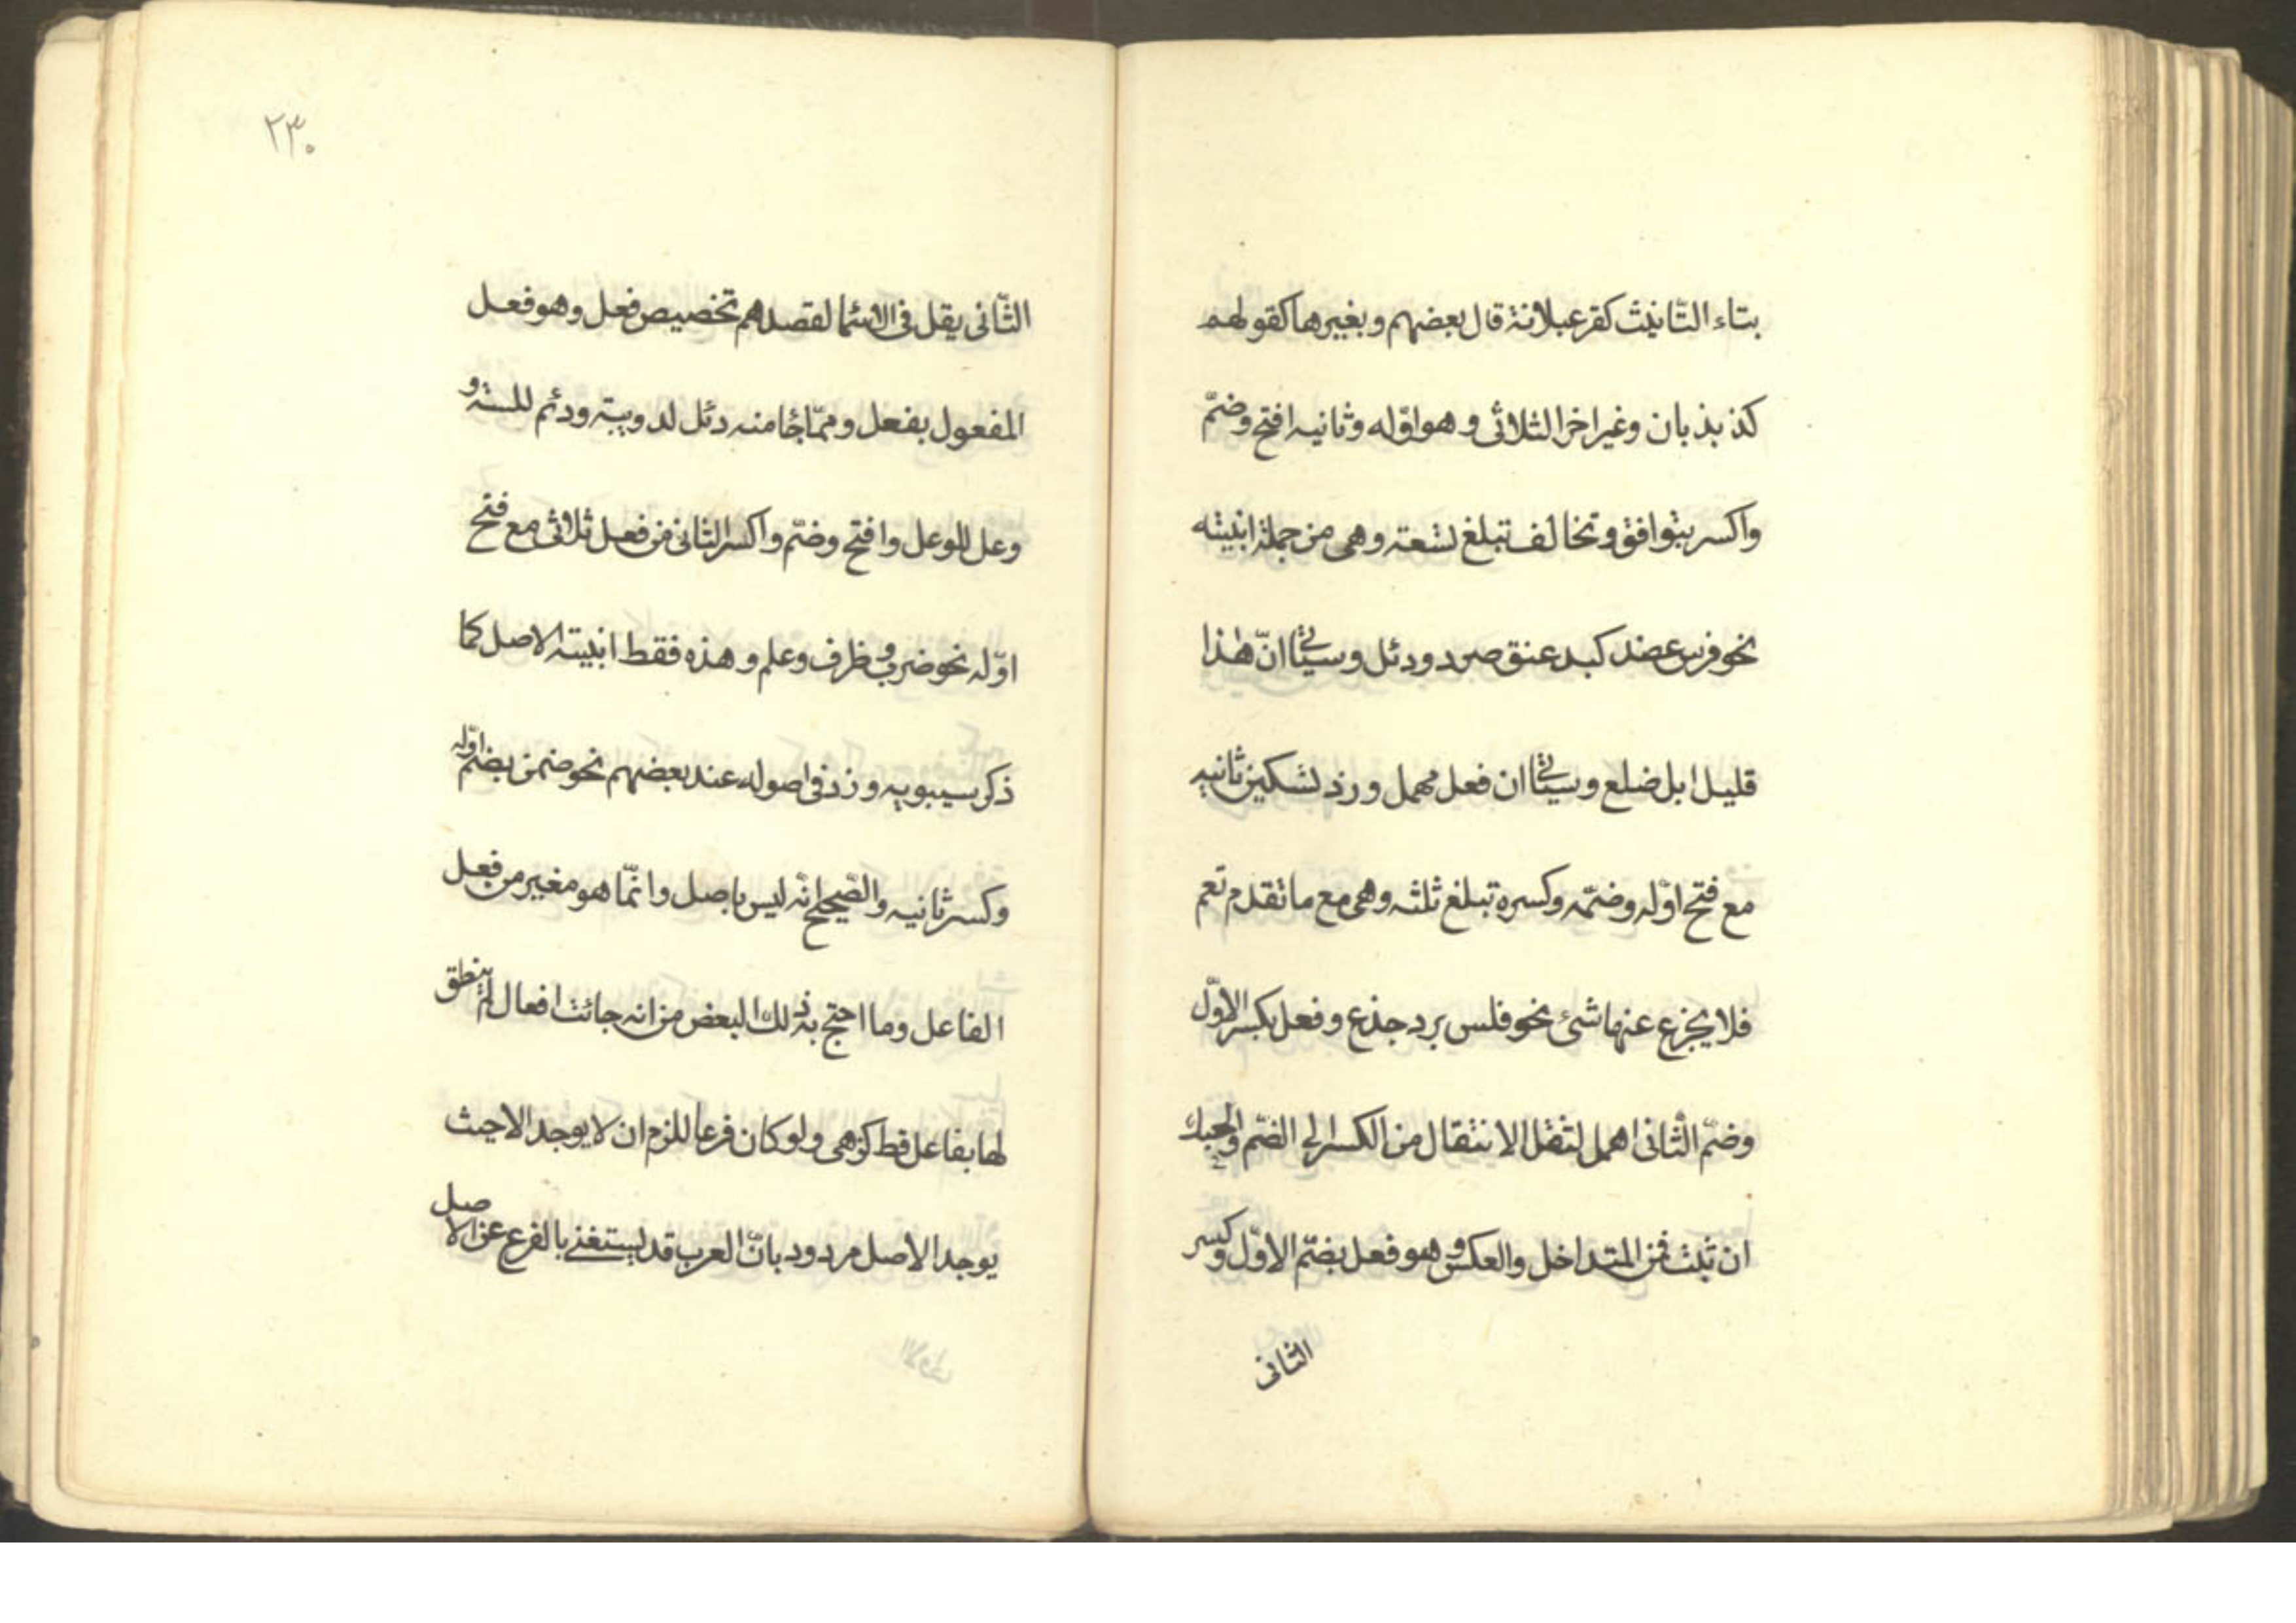 بتاء التّانيث كقرعبلانة قال بعضهم و بغيرها كقولهم
كذبذبان وغير اخر الثلاثى و هو اوّله وثانيه افتح وضمّ
واكسر بتوافق و تخالف تبلغ تسعته وهى من جملة ابنيته
نحو فرس عضد كبد عنق صرد و دئل و سياتى انّ هذا
قليل ابل ضلع و سياتى ان فعل مهمل و زد تسكين ثانيه
مع فتح اوّله وضمّه وكسره تبلغ ثلثه وهى مع ما تقدم تعم
فلا يخرج عنها شئ نحو فلس برد جذع و فعل بكسر الاوّل
وضمّ الثانى اهمل لثقل الانتقال من الكسر الى الضّم والحبك
ان ثبت فمن المتداخل والعكس و هو فعل بضمّ الاوّل وكسر
الثانى
٢٣٠
الثّانى يقل فى الاسما لقصدهم تخصيص فعل وهو فعل
المفعول بفعل و ممّا جا منه دئل لدويبة ودئم للسته و
وعل للوعل وافتح وضمّ واكسر الثانى من فعل ثلاثى مع فتح
اوّله نحو ضرب و ظرف وعلم و هذه فقط ابنيته الاصل كما
ذكر سيبويه و زد فى اصوله عند بعضهم نحو ضمن بضم اوّله
وكسر ثانيه والصّحيح انّه ليس باصل وانّما هو مغير من فعل
الفاعل وما احتج به ذلك البعض من انه جائت افعال لم ينطق
لها بفاعل قط كزهى ولو كان فرعا للزم ان لا يوجد الا حيث
يوجد الاصل مردود بانّ العرب قد يستغنى بالفرع عن الاصل